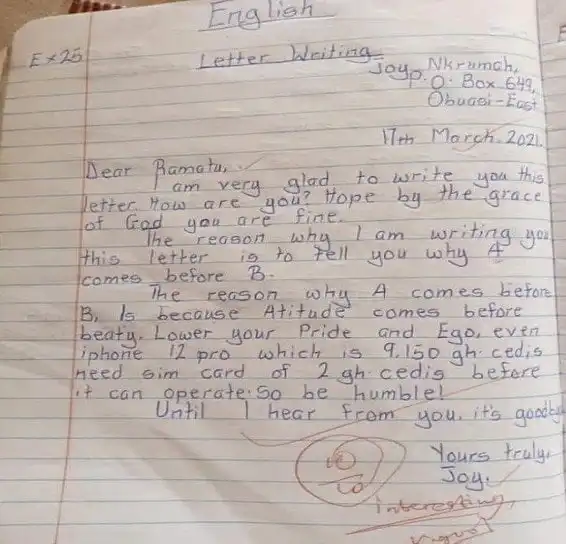 English
Ex 25
Letter Writing
Joyo Nkrumah,
P. O. Box 649,
Obuasi-East
17th March. 2021.
Dear Ramatu,
I am very glad to write you this
letter. How are you? Hope by the grace
of God you are fine.
The reason why I am writing you
this letter is to tell you why A
comes before B.
The reason why A comes before
B, Is because Atitude comes before
beaty. Lower your Pride and Ego, even
iphone 12 pro which is 9.150 gh. cedis
need sim card of 2 gh. cedis before
it can operate. So be humble!
Until I hear from you, it's goodby
Yours truly,
Joy.
10
10
interesting